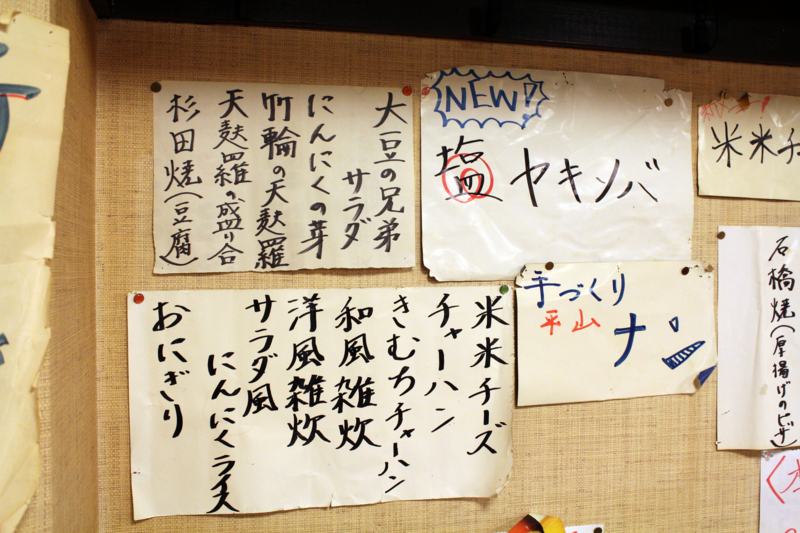 大豆の兄弟
サラダ
にんにくの芽
竹輪の天麩羅
天麩羅の盛り合
杉田焼(豆腐)
NEW!
塩ヤキソバ
米米チ
手づくり
平山
ナン
石橋焼(厚揚げのピザ)
米米チーズ
チャーハン
きむちチャーハン
和風雑炊
洋風雑炊
サラダ風
にんにくライス
おにぎり